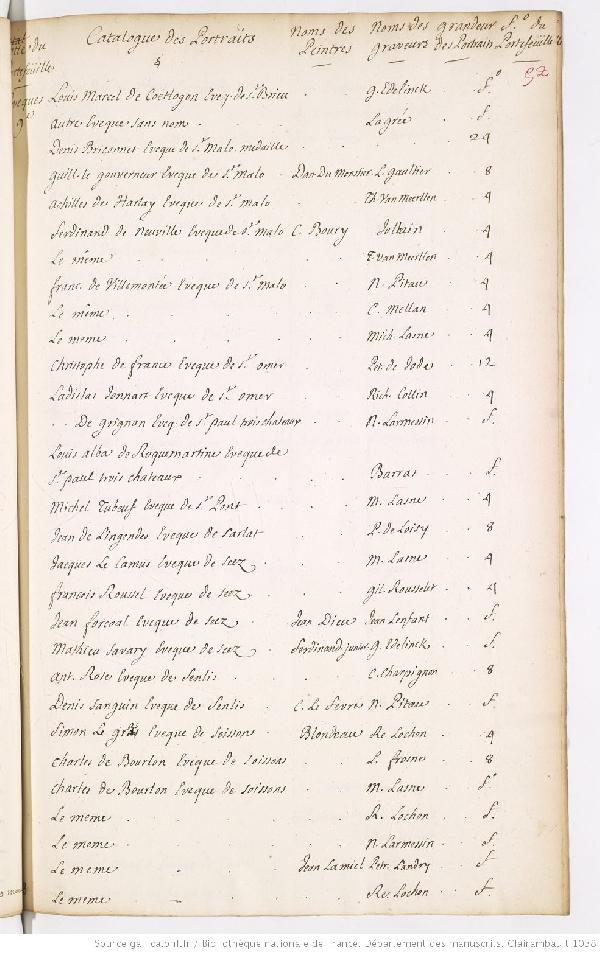 Catalogue des Portraits Noms des Peintres Noms des graveurs grandeur des Portraits f.º du Portefeüille
§
92
Louis Marcel de Coetlogon Eveq. de S.t Brieu . g. Edelinck . f.º
Autre Eveque sans nom . . . Lagrée . f.
Denis Briconnet Eveque de S.t Malo medaille . . . 24
guill. le gouverneur Eveque de S.t Malo . Dan. Du Monstier L. gaultier . 8
Achilles de Harlay Eveque de S.t malo . Th. Van Merllen . 4
Ferdinand de Neuville Eveque de S.t malo C. Boury Jollain . 4
Le même . . . T. Van Merllen . 4
franc. de Villemontée Eveque de S.t Malo . N. Pitau . 4
Le même . . . C. Mellan . 4
Le meme . . . Mich. Lasne . 4
Christophe de france Eveque de S.t omer . Pet. de Jode . 12
Ladislas Jonnart Eveque de S.t omer . Rich. Collin . 4
. . De grignan Eveq. de S.t paul trois chateaux . N. Larmessin . f.
Louis alba de Roquemartine Eveque de
S.t paul trois chateaux . . . Barras . f.
Michel Tubœuf Eveque de S.t Pont . . . M. Lasne . 4
Jean de Lingendes Eveque de Sarlat . . P. de Loisy . 8
Jacques Le Camus Eveque de Seez . . M. Lasne . 4
françois Roussel Eveque de Seez . . gil. Rousselet . 4
Jean forcoal Eveque de Seez . Jean Dieu Jean Lenfant . f.
Mathieu Savary Eveque de Seez . Ferdinand junior g. Edelinck . f.
Ant. Rose Eveque de Senlis . . C. Charpignon . 8
Denis Sanguin Eveque de Senlis . C. Le Fevre N. Pitau . f.
Simon Le gras Eveque de Soissons . Blondeau Re. Lochon . 4
Charles de Bourlon Eveque de Soissons . L. frosne . 8
Charles de Bourlon Eveque de Soissons . M. Lasne . f.º
Le meme . . . R. Lochon . f.
Le meme . . . N. Larmessin . f.
Le meme . Jean Lamiel Petr. Landry . f.
Le meme . . . Re. Lochon . f.
Source gallica.bnf.fr / Bibliothèque nationale de France. Département des manuscrits. Clairambault 1038